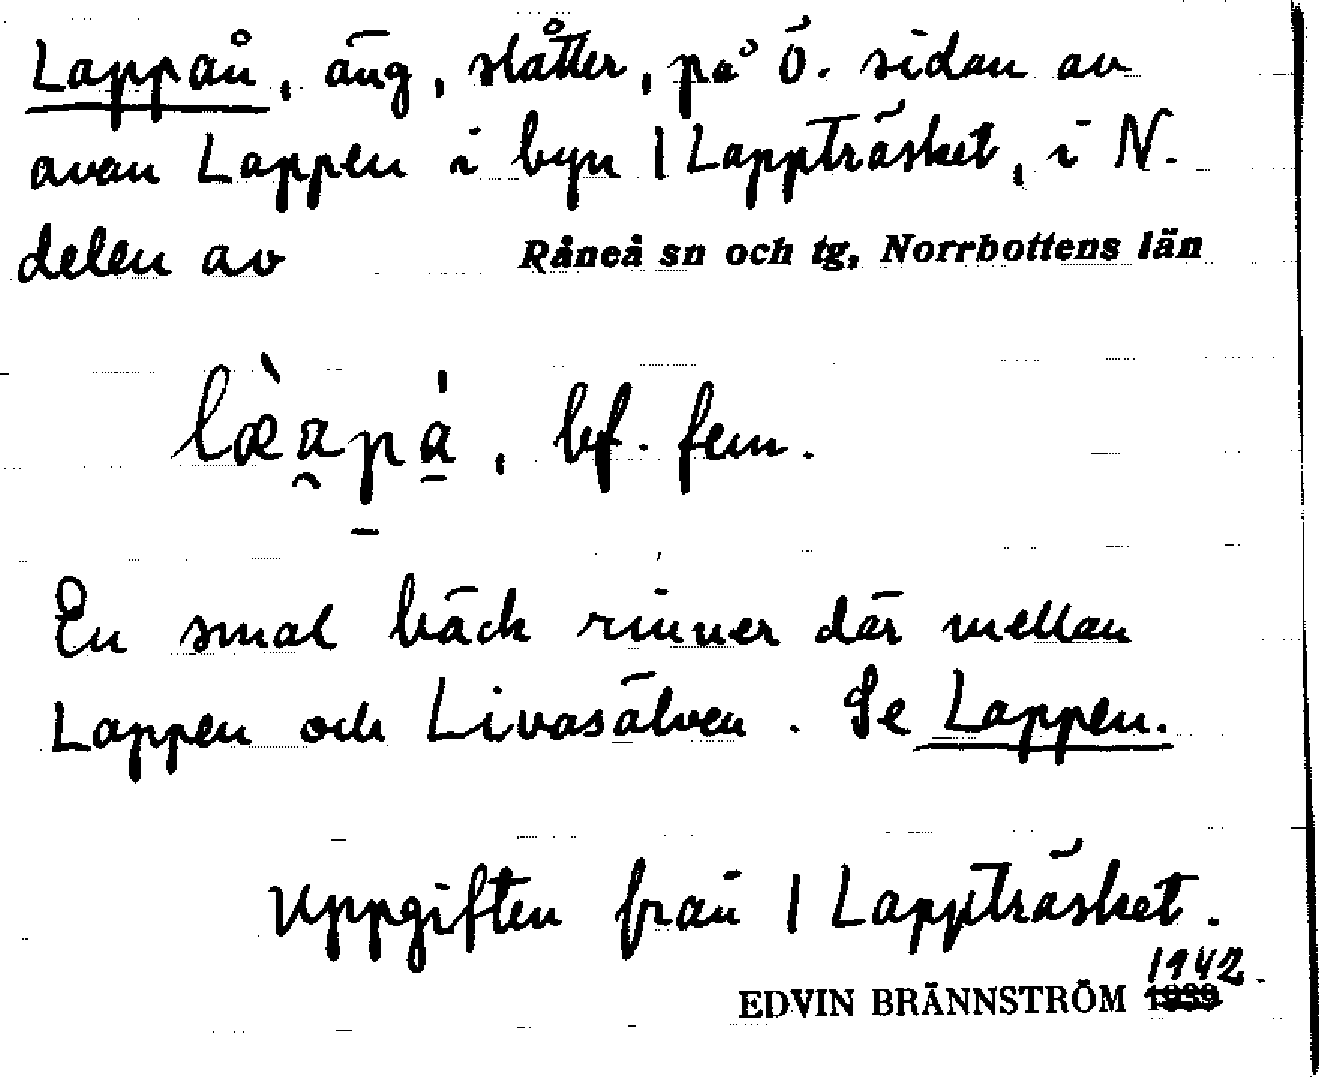 Lappån, äng, slåtter, på ö. sidan av
avan Lappen i byn 1 Lappträsket, i N.
delen av Råneå sn och tg, Norrbottens län
bf. fem.
En smal bäck rinner där mellan
Lappen och Livasälven. Se Lappen.
Uppgiften från 1 Lappträsket.
1942
EDVIN BRÄNNSTRÖM 1939